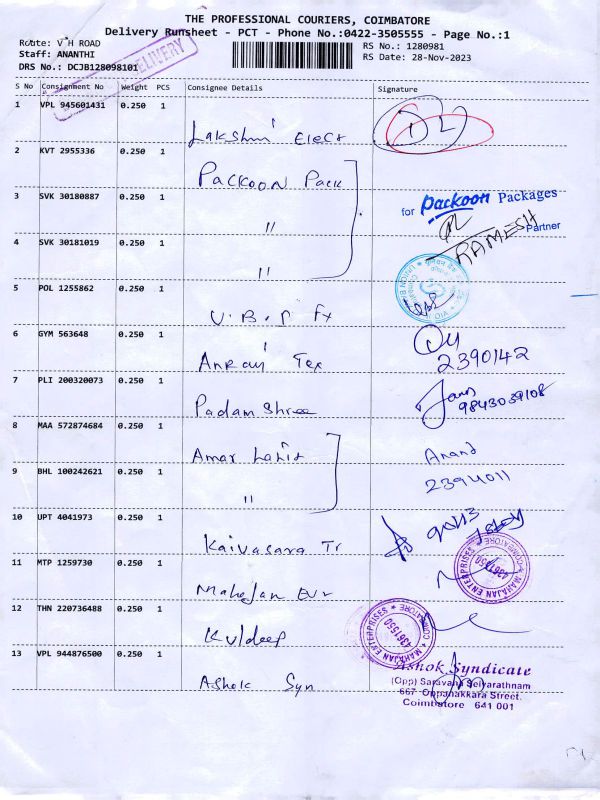 THE PROFESSIONAL COURIERS, COIMBATORE
Delivery Runsheet - PCT - Phone No.:0422-3505555 - Page No.:1
Route: V H ROAD
Staff: ANANTHI
DRS No.: DCJB128098101
DELIVERY
RS No.: 1280981
RS Date: 28-Nov-2023
S No Consignment No Weight PCS Consignee Details Signature
1 VPL 945601431 0.250 1 Lakshmi Elect
2 KVT 2955336 0.250 1 Packoon Pack
3 SVK 30180887 0.250 1 "
for Packoon Packages
Partner
RAMESH
4 SVK 30181019 0.250 1 "
5 POL 1255862 0.250 1 U.B.I Fx
6 GYM 563648 0.250 1 Tex
2390142
7 PLI 200320073 0.250 1 Padam Shree
9843039108
8 MAA 572874684 0.250 1 Amar
Anand
9 BHL 100242621 0.250 1 "
2394011
10 UPT 4041973 0.250 1 Kaivasara Tr
11 MTP 1259730 0.250 1 Mahajan
MAHAJAN ENTERPRISES COIMBATORE 4361550
12 THN 220736488 0.250 1 Kuldeep
MAHAJAN ENTERPRISES COIMBATORE 4361550
13 VPL 944876500 0.250 1 Ashok Syn
Ashok Syndicate
(Opp) Saravana Selvarathnam
667 Oppanakkara Street,
Coimbatore 641 001